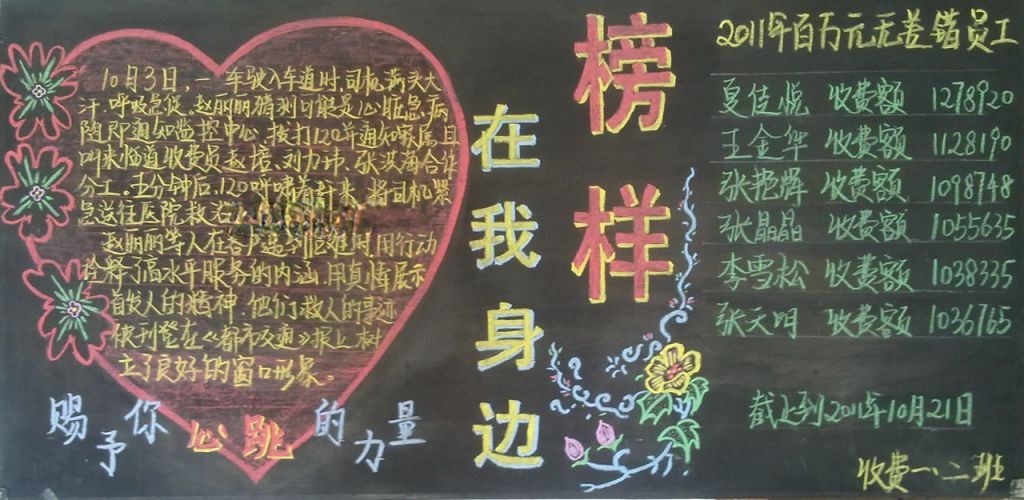 10月3日,一车驶入车道时,司机满头大
汗,呼吸急促,赵丽丽猜测可能是心脏急病
随即通知监控中心拨打120并通知家属且
叫来临道收费员赵培、刘力坤、张洪海合作
分工,五分钟后,120呼啸着赶来,将司机紧
急送往医院救治
赵丽丽等人在客户遇到危难时,用行动
诠释了高水平服务的内涵,用真情展示
首发人的精神,他们救人的事迹
被刊登在《都市交通》报上,树
立了良好的窗口形象。
赐予你心跳的力量
榜样
在我身边
2011年百万元无差错员工
夏佳悦 收费额 1278920
王金华 收费额 1128190
张艳辉 收费额 1098748
张晶晶 收费额 1055635
李雪松 收费额 1038335
张天明 收费额 1036765
截止到2011年10月21日
收费一、二班